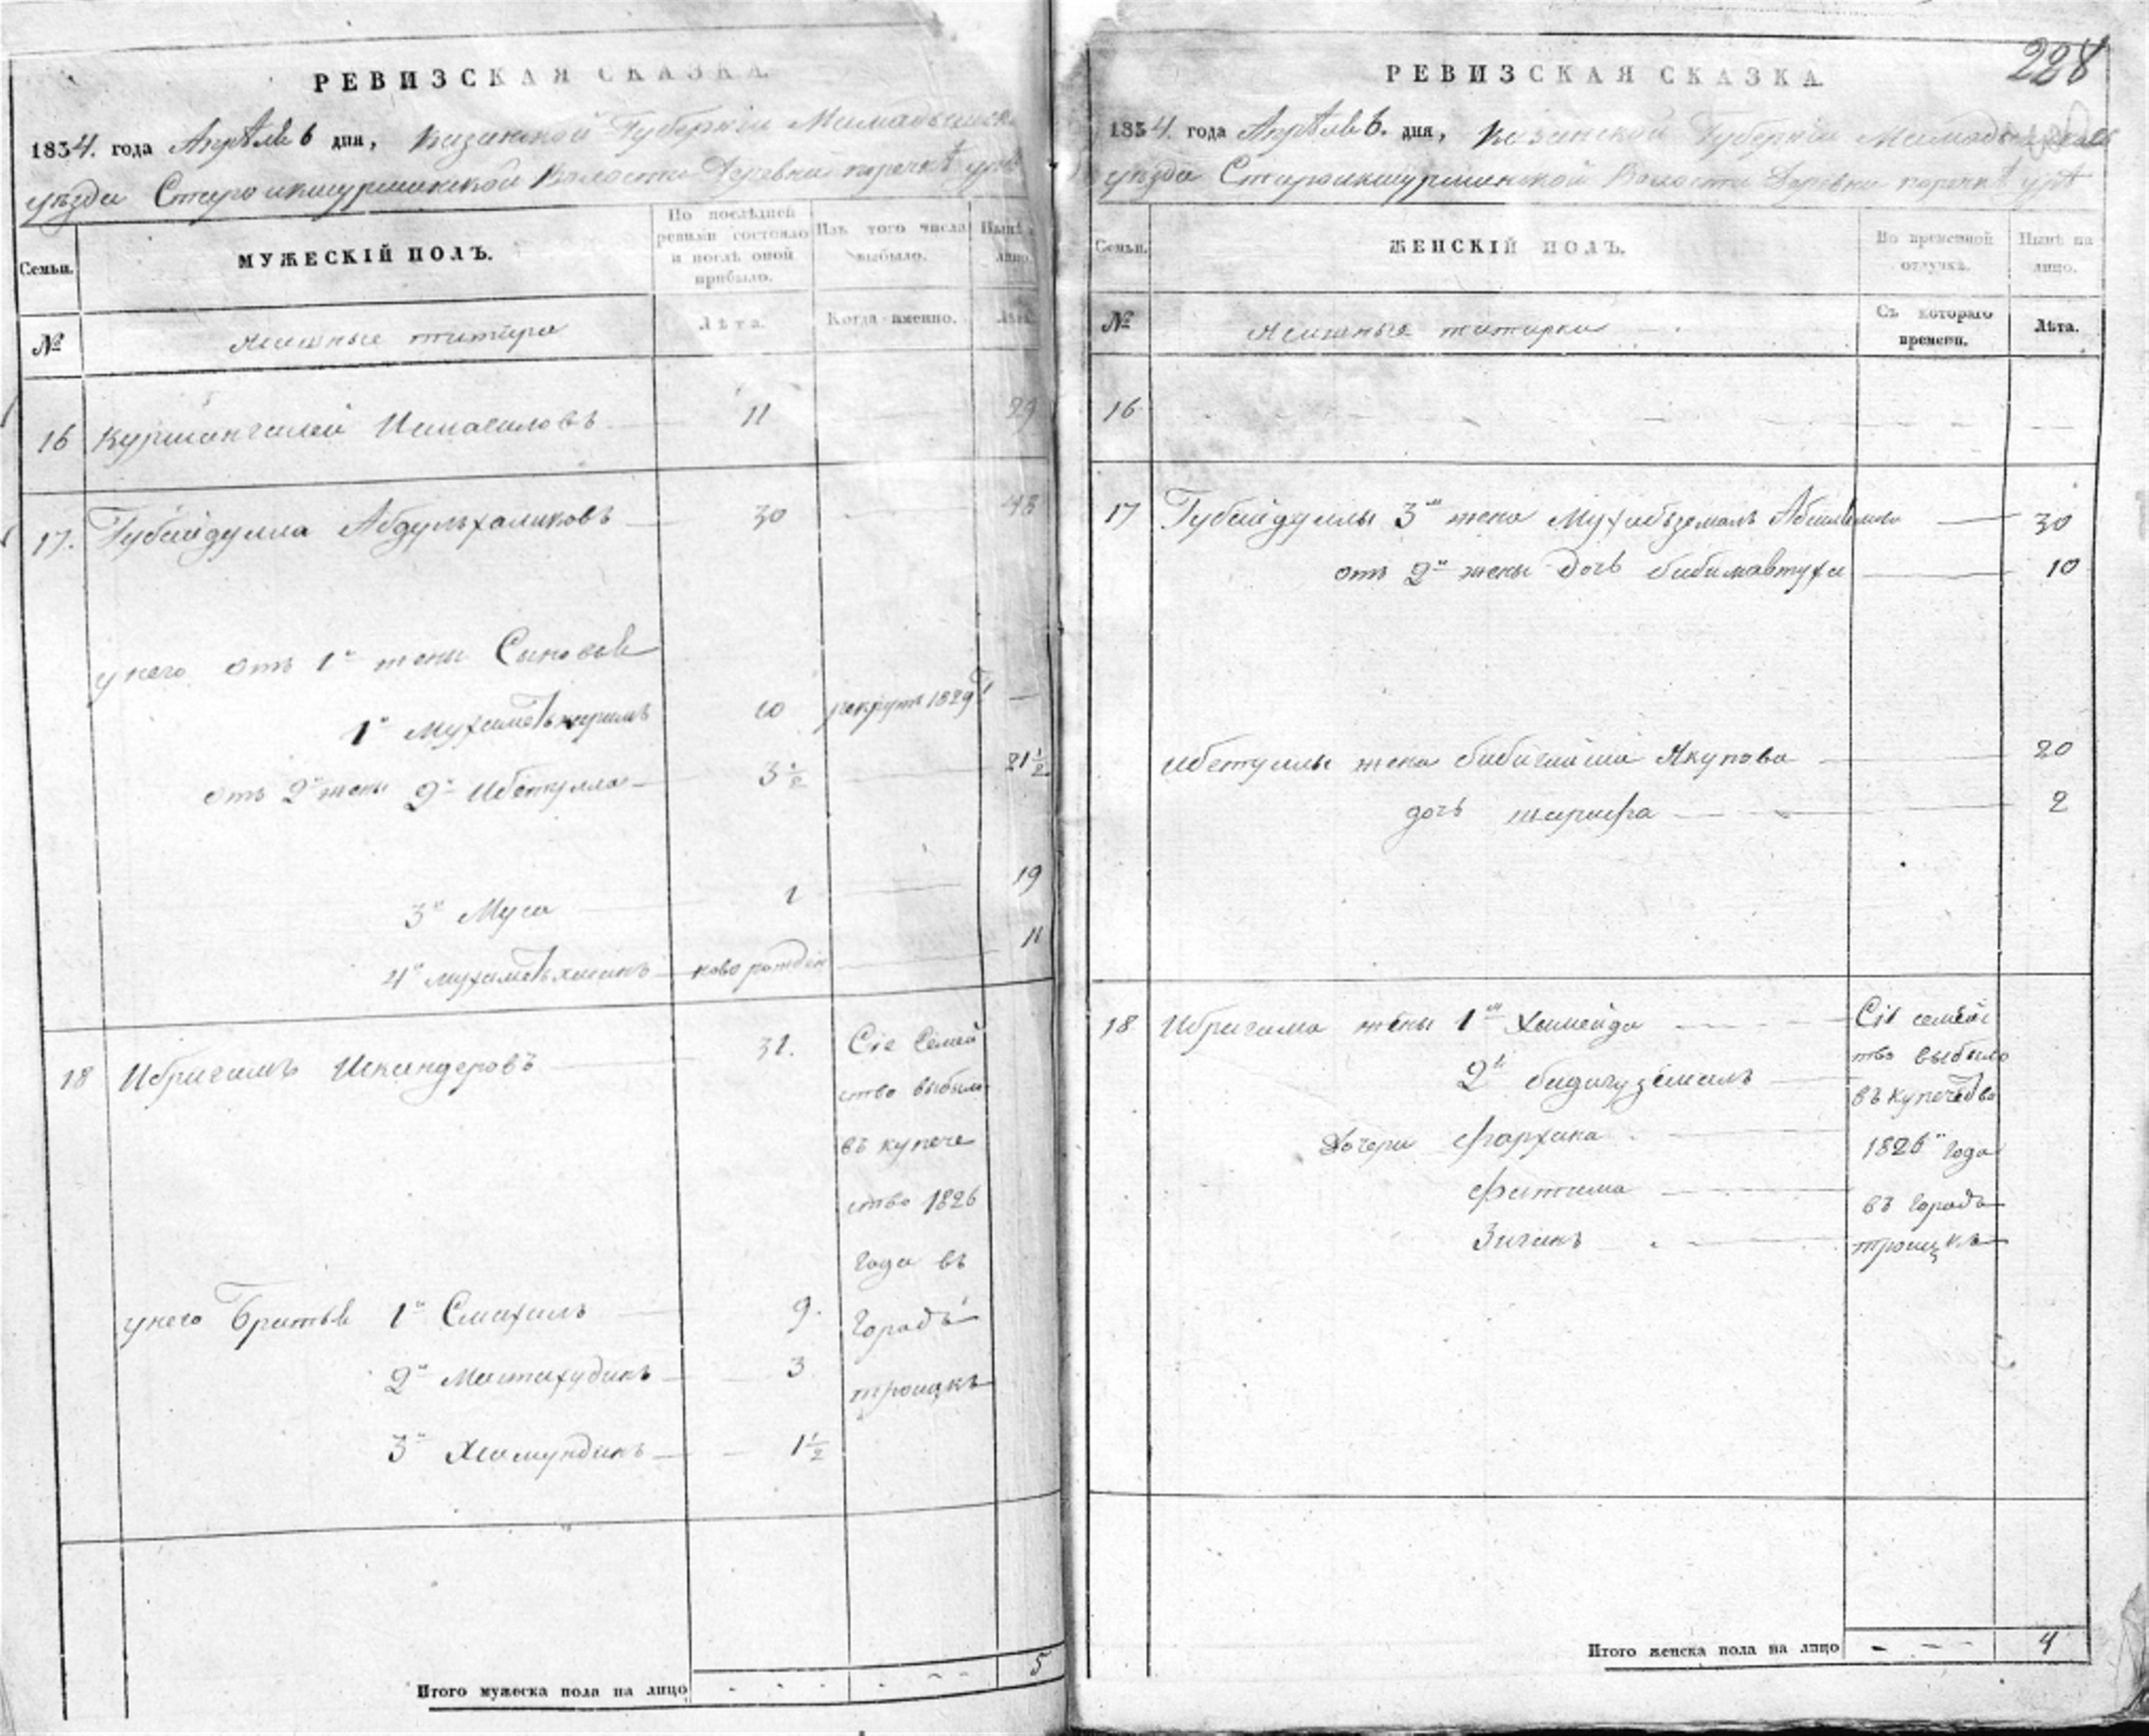 РЕВИЗСКАЯ СКАЗКА.
1834. года Апрѣля 6 дня, Казанской Губерніи Мамадышска
уѣзда Староикшурминской Волости Деревни
Семьи.
МУЖЕСКІЙ ПОЛЪ.
По послѣдней ревизіи состояло и послѣ оной прибыло.
Изъ того числа выбыло.
Нынѣ на лицо.
№
Ясашные татара
Лѣта.
Когда именно.
Лѣта.
16 Курмангалей Исмагиловъ 11 — 29
17. Губейдулла Абдулъхаликовъ 30 — 48
у него отъ 1й жены Сыновья
1й Мухаметькаримъ 10 рекрутъ 1829 г —
отъ 2й жены 2й Ибетулла 3 1/2 — 21 1/2
3й Муса 1 — 19
4й новорожден — 11
18 Ибрагимъ Искандеровъ 31. Сіе Семей
ство выбыло
въ купече
ство 1826
года въ
у него Братья 1й Смагилъ 9. Городъ
2й 3 троицкъ
3й 1 1/2
Итого мужеска пола на лицо - - - 5
228
РЕВИЗСКАЯ СКАЗКА.
1834. года Апрѣля 6. дня, Казанской Губерніи Мамадышской
уѣзда Староикшурминской Волости Деревни
Семьи.
ЖЕНСКІЙ ПОЛЪ.
Во временной отлучкѣ.
Нынѣ на лицо.
№
Ясашные татарки
Съ котораго времени.
Лѣта.
16
17 Губейдуллы 3я жена — 30
отъ 2й жены дочь бибимавтуха — 10
ибетуллы жена бибигайша Якупова — 20
дочь шарифа — 2
18 Ибрагима жены 1я Хамейда — Сіе семѣй
2я — тво выбыло
въ купечество
Дочери Фархана — 1826го года
Фатима — въ городъ
Зиганъ — троицкъ
Итого женска пола на лицо - - - 4